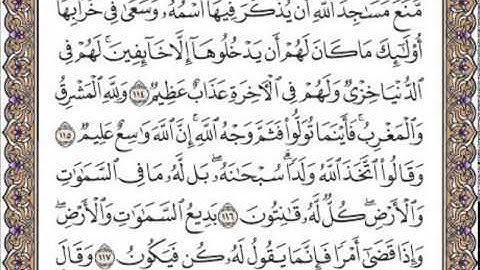 مَّنَعَ مَسَٰجِدَ ٱللَّهِ أَن يُذۡكَرَ فِيهَا ٱسۡمُهُۥ وَسَعَىٰ فِي خَرَابِهَآۚ
أُوْلَٰٓئِكَ مَا كَانَ لَهُمۡ أَن يَدۡخُلُوهَآ إِلَّا خَآئِفِينَۚ لَهُمۡ فِي
ٱلدُّنۡيَا خِزۡيٞ وَلَهُمۡ فِي ٱلۡأٓخِرَةِ عَذَابٌ عَظِيمٞ ١١٤ وَلِلَّهِ ٱلۡمَشۡرِقُ
وَٱلۡمَغۡرِبُۚ فَأَيۡنَمَا تُوَلُّواْ فَثَمَّ وَجۡهُ ٱللَّهِۚ إِنَّ ٱللَّهَ وَٰسِعٌ عَلِيمٞ ١١٥
وَقَالُواْ ٱتَّخَذَ ٱللَّهُ وَلَدٗاۗ سُبۡحَٰنَهُۥۖ بَل لَّهُۥ مَا فِي ٱلسَّمَٰوَٰتِ
وَٱلۡأَرۡضِۖ كُلّٞ لَّهُۥ قَٰنِتُونَ ١١٦ بَدِيعُ ٱلسَّمَٰوَٰتِ وَٱلۡأَرۡضِۖ
وَإِذَا قَضَىٰٓ أَمۡرٗا فَإِنَّمَا يَقُولُ لَهُۥ كُن فَيَكُونُ ١١٧ وَقَالَ